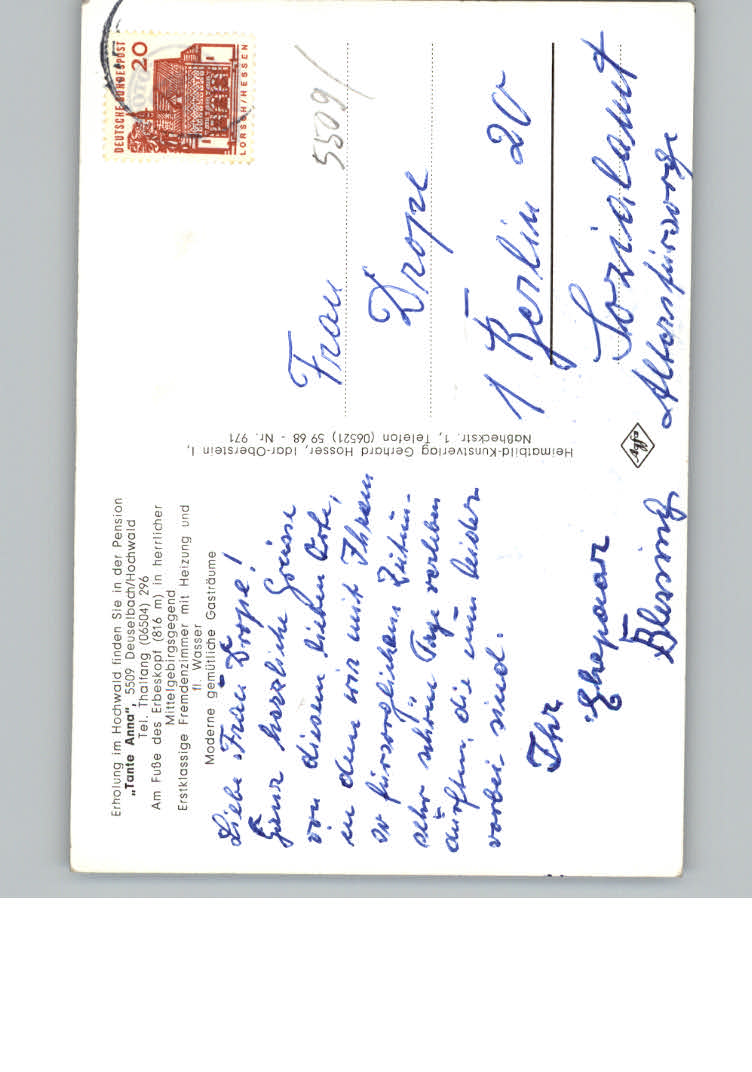 Erholung im Hochwald finden Sie in der Pension
„Tante Anna", 5509 Deuselbach/Hochwald
Tel. Thalfang (06504) 296
Am Fuße des Erbeskopf (816 m) in herrlicher
Mittelgebirgsgegend
Erstklassige Fremdenzimmer mit Heizung und
fl. Wasser
Moderne gemütliche Gasträume
Liebe Frau Drope!
Ganz herzliche Grüsse
von diesem lieben Orte,
in dem wir mit Ihrem
so fürsorglichem
sehr schöne Tage verleben
durften, die nun leider
vorbei sind.
Ihr
Ehepaar
Blessing
Heimatbild-Kunstverlag Gerhard Hosser, Idar-Oberstein 1,
Naßheckstr. 1, Telefon (06521) 59 68 - Nr. 971
DEUTSCHE BUNDESPOST
20
LORSCH/HESSEN
5509/
Frau
Drope
1 Berlin 20
Sozialamt
Altersfürsorge